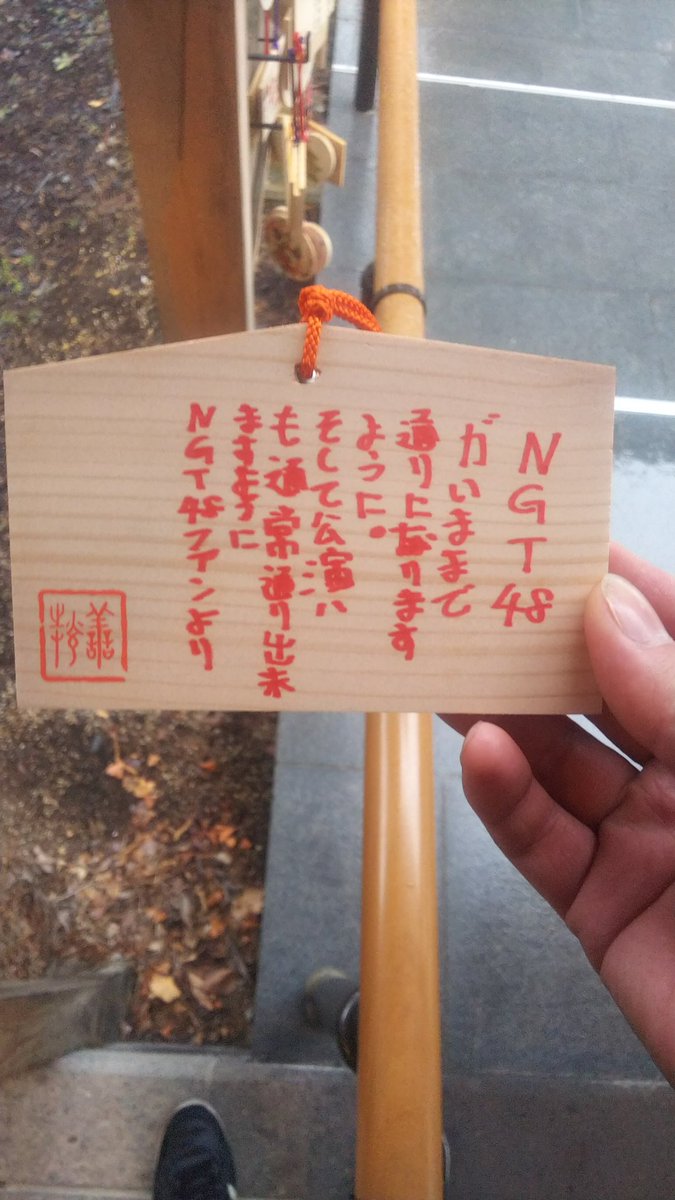 NGT48
がいままで
通りになります
ように。
そして公演ハ
も通常通り出来
ますように
NGT48ファンより